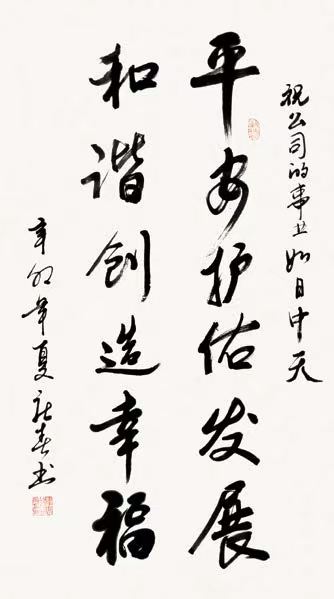 祝公司的事业如日中天
平安护佑发展
和谐创造幸福
辛卯年夏 春书